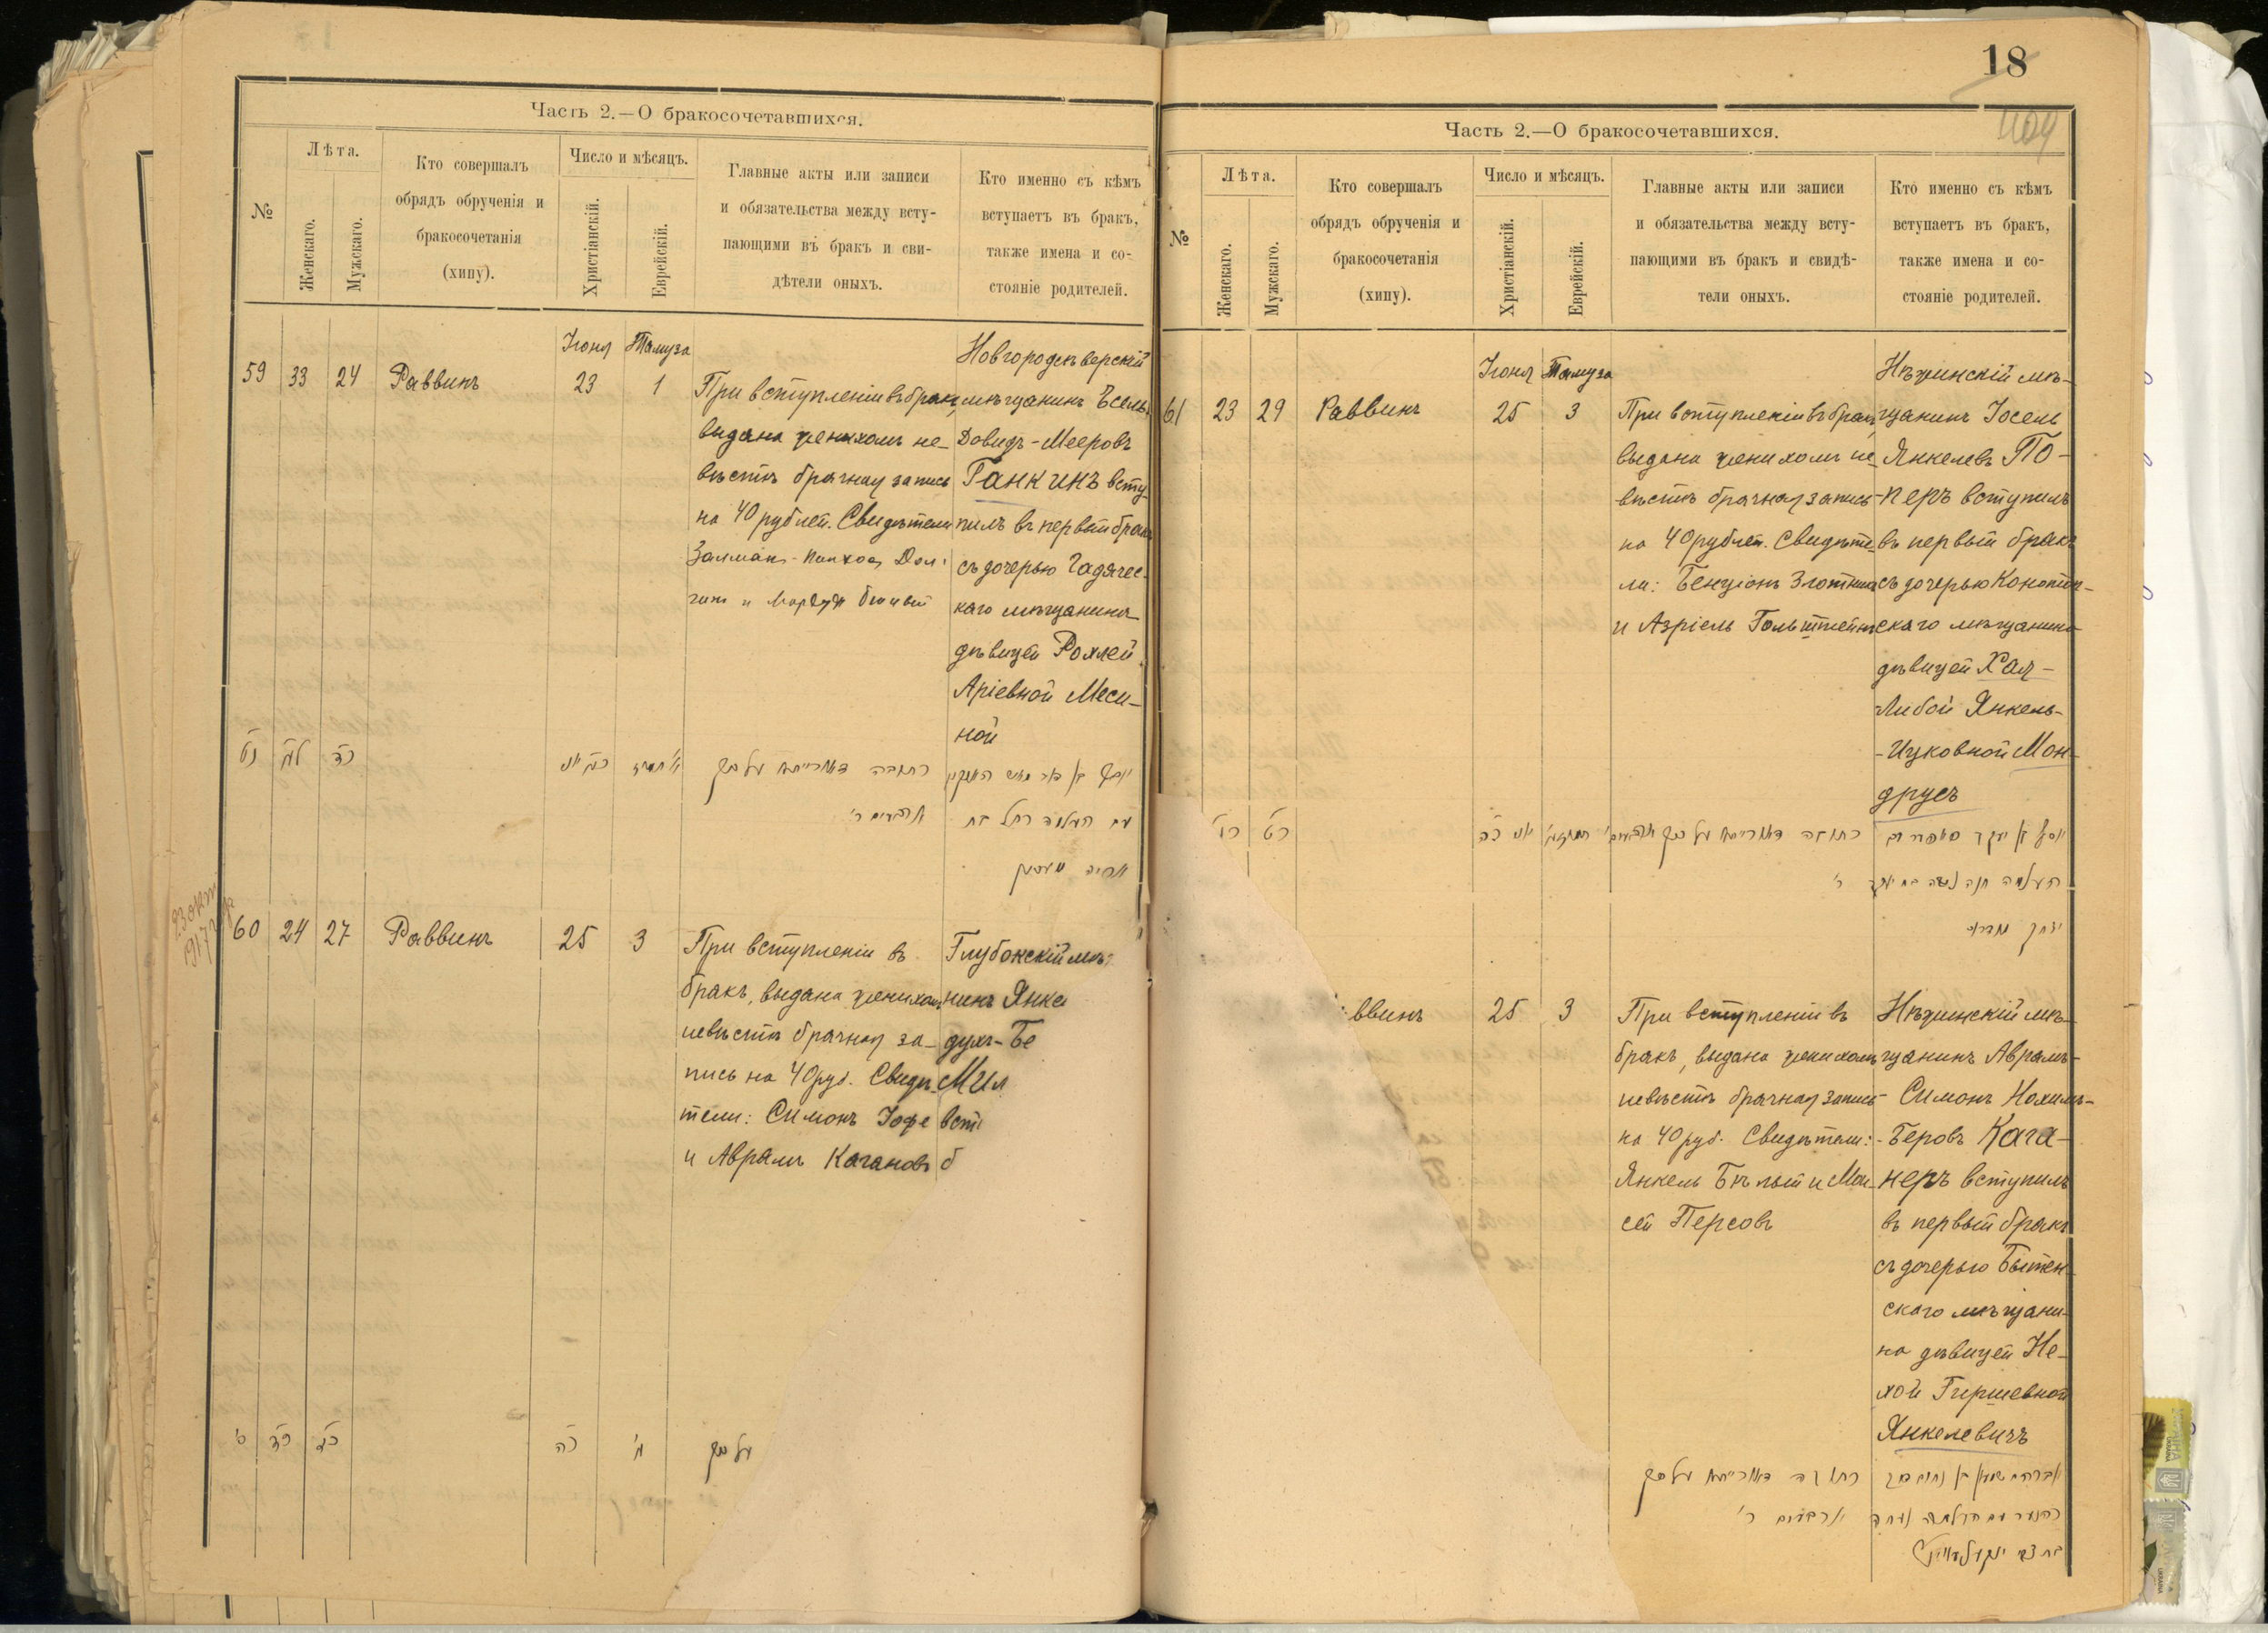 Часть 2.—О бракосочетавшихся.
№
Лѣта.
Женскаго.
Мужскаго.
Кто совершалъ
обрядъ обрученія и
бракосочетанія
(хипу).
Число и мѣсяцъ.
Христіанскій.
Еврейскій.
Главные акты или записи
и обязательства между всту-
пающими въ бракъ и сви-
дѣтели оныхъ.
Кто именно съ кѣмъ
вступаетъ въ бракъ,
также имена и со-
стояніе родителей.
Іюня Тамуза
59 33 24 Раввинъ 23 1
При вступленіи въ бракъ,
выдана женихомъ не-
вѣстѣ брачная запись
на 40 рублей. Свидѣтели
Залманъ-Пинхосъ
Новгородсѣверскій
мѣщанинъ Есель-
Довидъ-Мееровъ
Ганкинъ всту-
пилъ въ первый бракъ
съ дочерью Гадячес-
каго мѣщанина
дѣвицей Рохлей
Аріевной Меси-
ной
נט לג כד
כתובה דאורייתא על סך
ארבעים ר'
עם העלמה רחל בת
23 окт
1917
60 24 27 Раввинъ 25 3
При вступленіи въ
бракъ, выдана женихомъ
невѣстѣ брачная за-
пись на 40 руб. Свидѣ-
тели: Симонъ Іофе
и Аврамъ Кагановъ
Глубокскій мѣ
нинъ Янке
духъ-Бе
Мил
вст
б
ס' כד כז כה ג' על סך
18
404
Часть 2.—О бракосочетавшихся.
№
Лѣта.
Женскаго.
Мужскаго.
Кто совершалъ
обрядъ обрученія и
бракосочетанія
(хипу).
Число и мѣсяцъ.
Христіанскій.
Еврейскій.
Главные акты или записи
и обязательства между всту-
пающими въ бракъ и свидѣ-
тели оныхъ.
Кто именно съ кѣмъ
вступаетъ въ бракъ,
также имена и со-
стояніе родителей.
Іюня Тамуза
61 23 29 Раввинъ 25 3
При вступленіи въ бракъ,
выдана женихомъ не-
вѣстѣ брачная запись
на 40 рублей. Свидѣте-
ли: Бенціонъ Злотникъ
и Азріель Гольштейнъ
Нѣжинскій мѣ-
щанинъ Іосель
Янкелевъ По-
перъ вступилъ
въ первый бракъ
съ дочерью Конотоп-
скаго мѣщанина
дѣвицей Хая-
Либой Янкель-
-Ицковной Мон-
друсъ
כתובה דאורייתא על סך ארבעים
ר'
ввинъ 25 3
При вступленіи въ
бракъ, выдана женихомъ
невѣстѣ брачная запись
на 40 руб. Свидѣтели:
Янкель Бѣлый и Мои-
сей Персовъ
Нѣжинскій мѣ-
щанинъ Аврамъ-
Симонъ Нохимъ-
-Беровъ Кага-
неръ вступилъ
въ первый бракъ
съ дочерью Бытен-
скаго мѣщани-
на дѣвицей Не-
хой Гиршевной
Янкелевичъ
כתובה דאורייתא על סך
ארבעים ר'
אברהם שמעון בן נחום בער